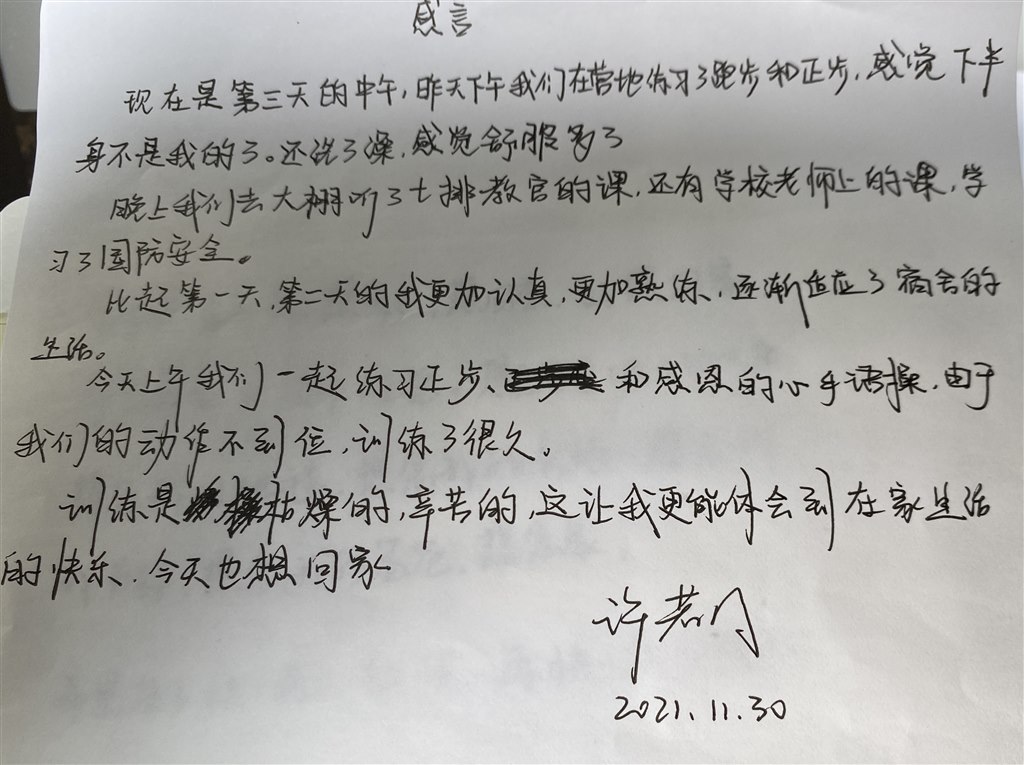 感言
现在是第三天的中午,昨天下午我们在营地练习了跑步和正步,感觉下半
身不是我的了。还洗了澡,感觉舒服多了
晚上我们去大棚听了七排教官的课,还有学校老师上的课,学
习了国防安全。
比起第一天,第二天的我更加认真,更加熟练,逐渐适应了宿舍的
生活。
今天上午我们一起练习正步、和感恩的心手语操,由于
我们的动作不到位,训练了很久。
训练是枯燥的,辛苦的,这让我更能体会到在家生活
的快乐,今天也想回家
许若
2021.11.30